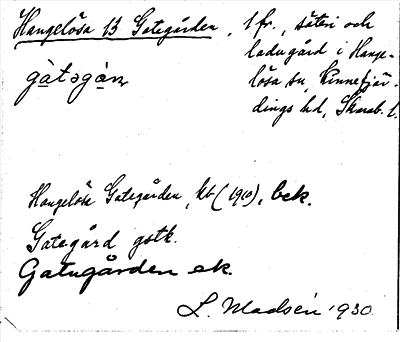 Hangelösa 13 Gategården, 1 fr., säteri och
ladugård i Hange-
lösa sn, Kinnefjär-
dings hd, Skarab. l.
gàtəgàn
Hangelösa Gategården, kt (1910), bek.
Gategård gstk.
Gatugården ek.
L. Madsén 1930